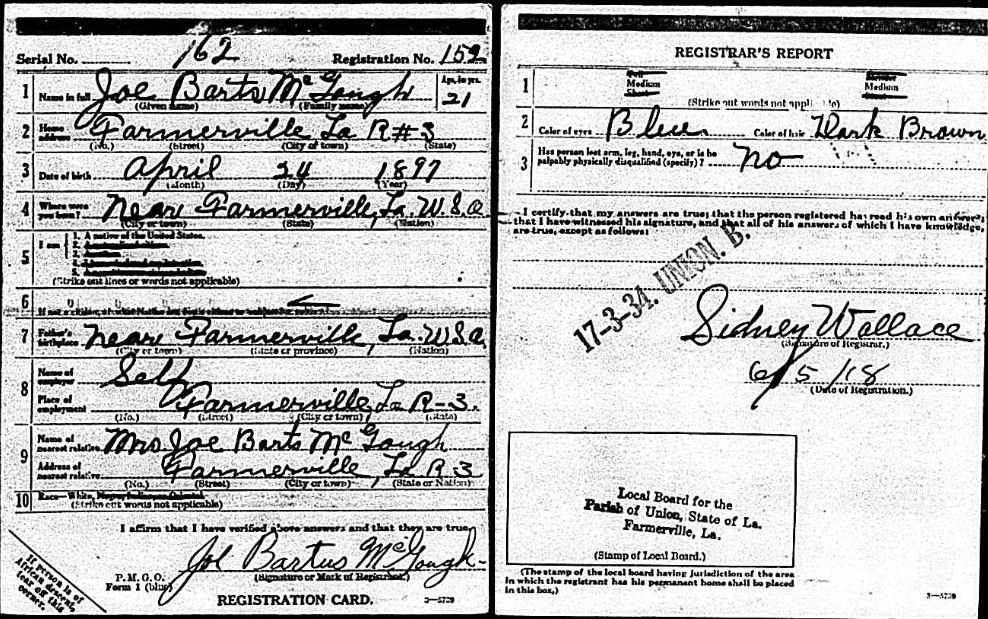 Serial No. 162 Registration No. 152
1 Name in full Joe Bartus McGough Age, in yrs. 21
(Given name) (Family name)
2 Home address Farmerville La R#3
(No.) (Street) (City or town) (State)
3 Date of birth April 24 1897
(Month) (Day) (Year)
4 Where were you born? Near Farmerville, La. U.S.a
(City or town) (State) (Nation)
5 I am 1. A native of the United States.
2.
3.
4.
5.
(Strike out lines or words not applicable)
6
7 Father's birthplace Near Farmerville, La. U.S.a
(City or town) (State or province) (Nation)
8 Name of employer Self
Place of employment Farmerville La R-3.
(No.) (Street) (City or town) (State)
9 Name of nearest relative Mrs Joe Barts McGough
Address of nearest relative Farmerville, La R 3
(No.) (Street) (City or town) (State or Nation)
10 Race—White,
(Strike out words not applicable)
I affirm that I have verified above answers and that they are true,
Joe Bartus McGough
P. M. G. O.
Form 1 (blue)
(Signature or Mark of Registrant.)
REGISTRATION CARD.
If person is of
African descent,
tear off this
corner.
REGISTRAR'S REPORT
1 Tall
Medium
Short
Slender
Medium
(Strike out words not applicable)
2 Color of eyes Blue Color of hair Dark Brown
3 Has person lost arm, leg, hand, eye, or is he
palpably physically disqualified (specify)? no
I certify that my answers are true; that the person registered has read his own answers;
that I have witnessed his signature, and that all of his answers of which I have knowledge,
are true, except as follows:
17-3-34. UNION. B.
Sidney Wallace
(Signature of Registrar.)
6/5/18
(Date of Registration.)
Local Board for the
Parish of Union, State of La.
Farmerville, La.
(Stamp of Local Board.)
(The stamp of the local board having jurisdiction of the area
in which the registrant has his permanent home shall be placed
in this box.)